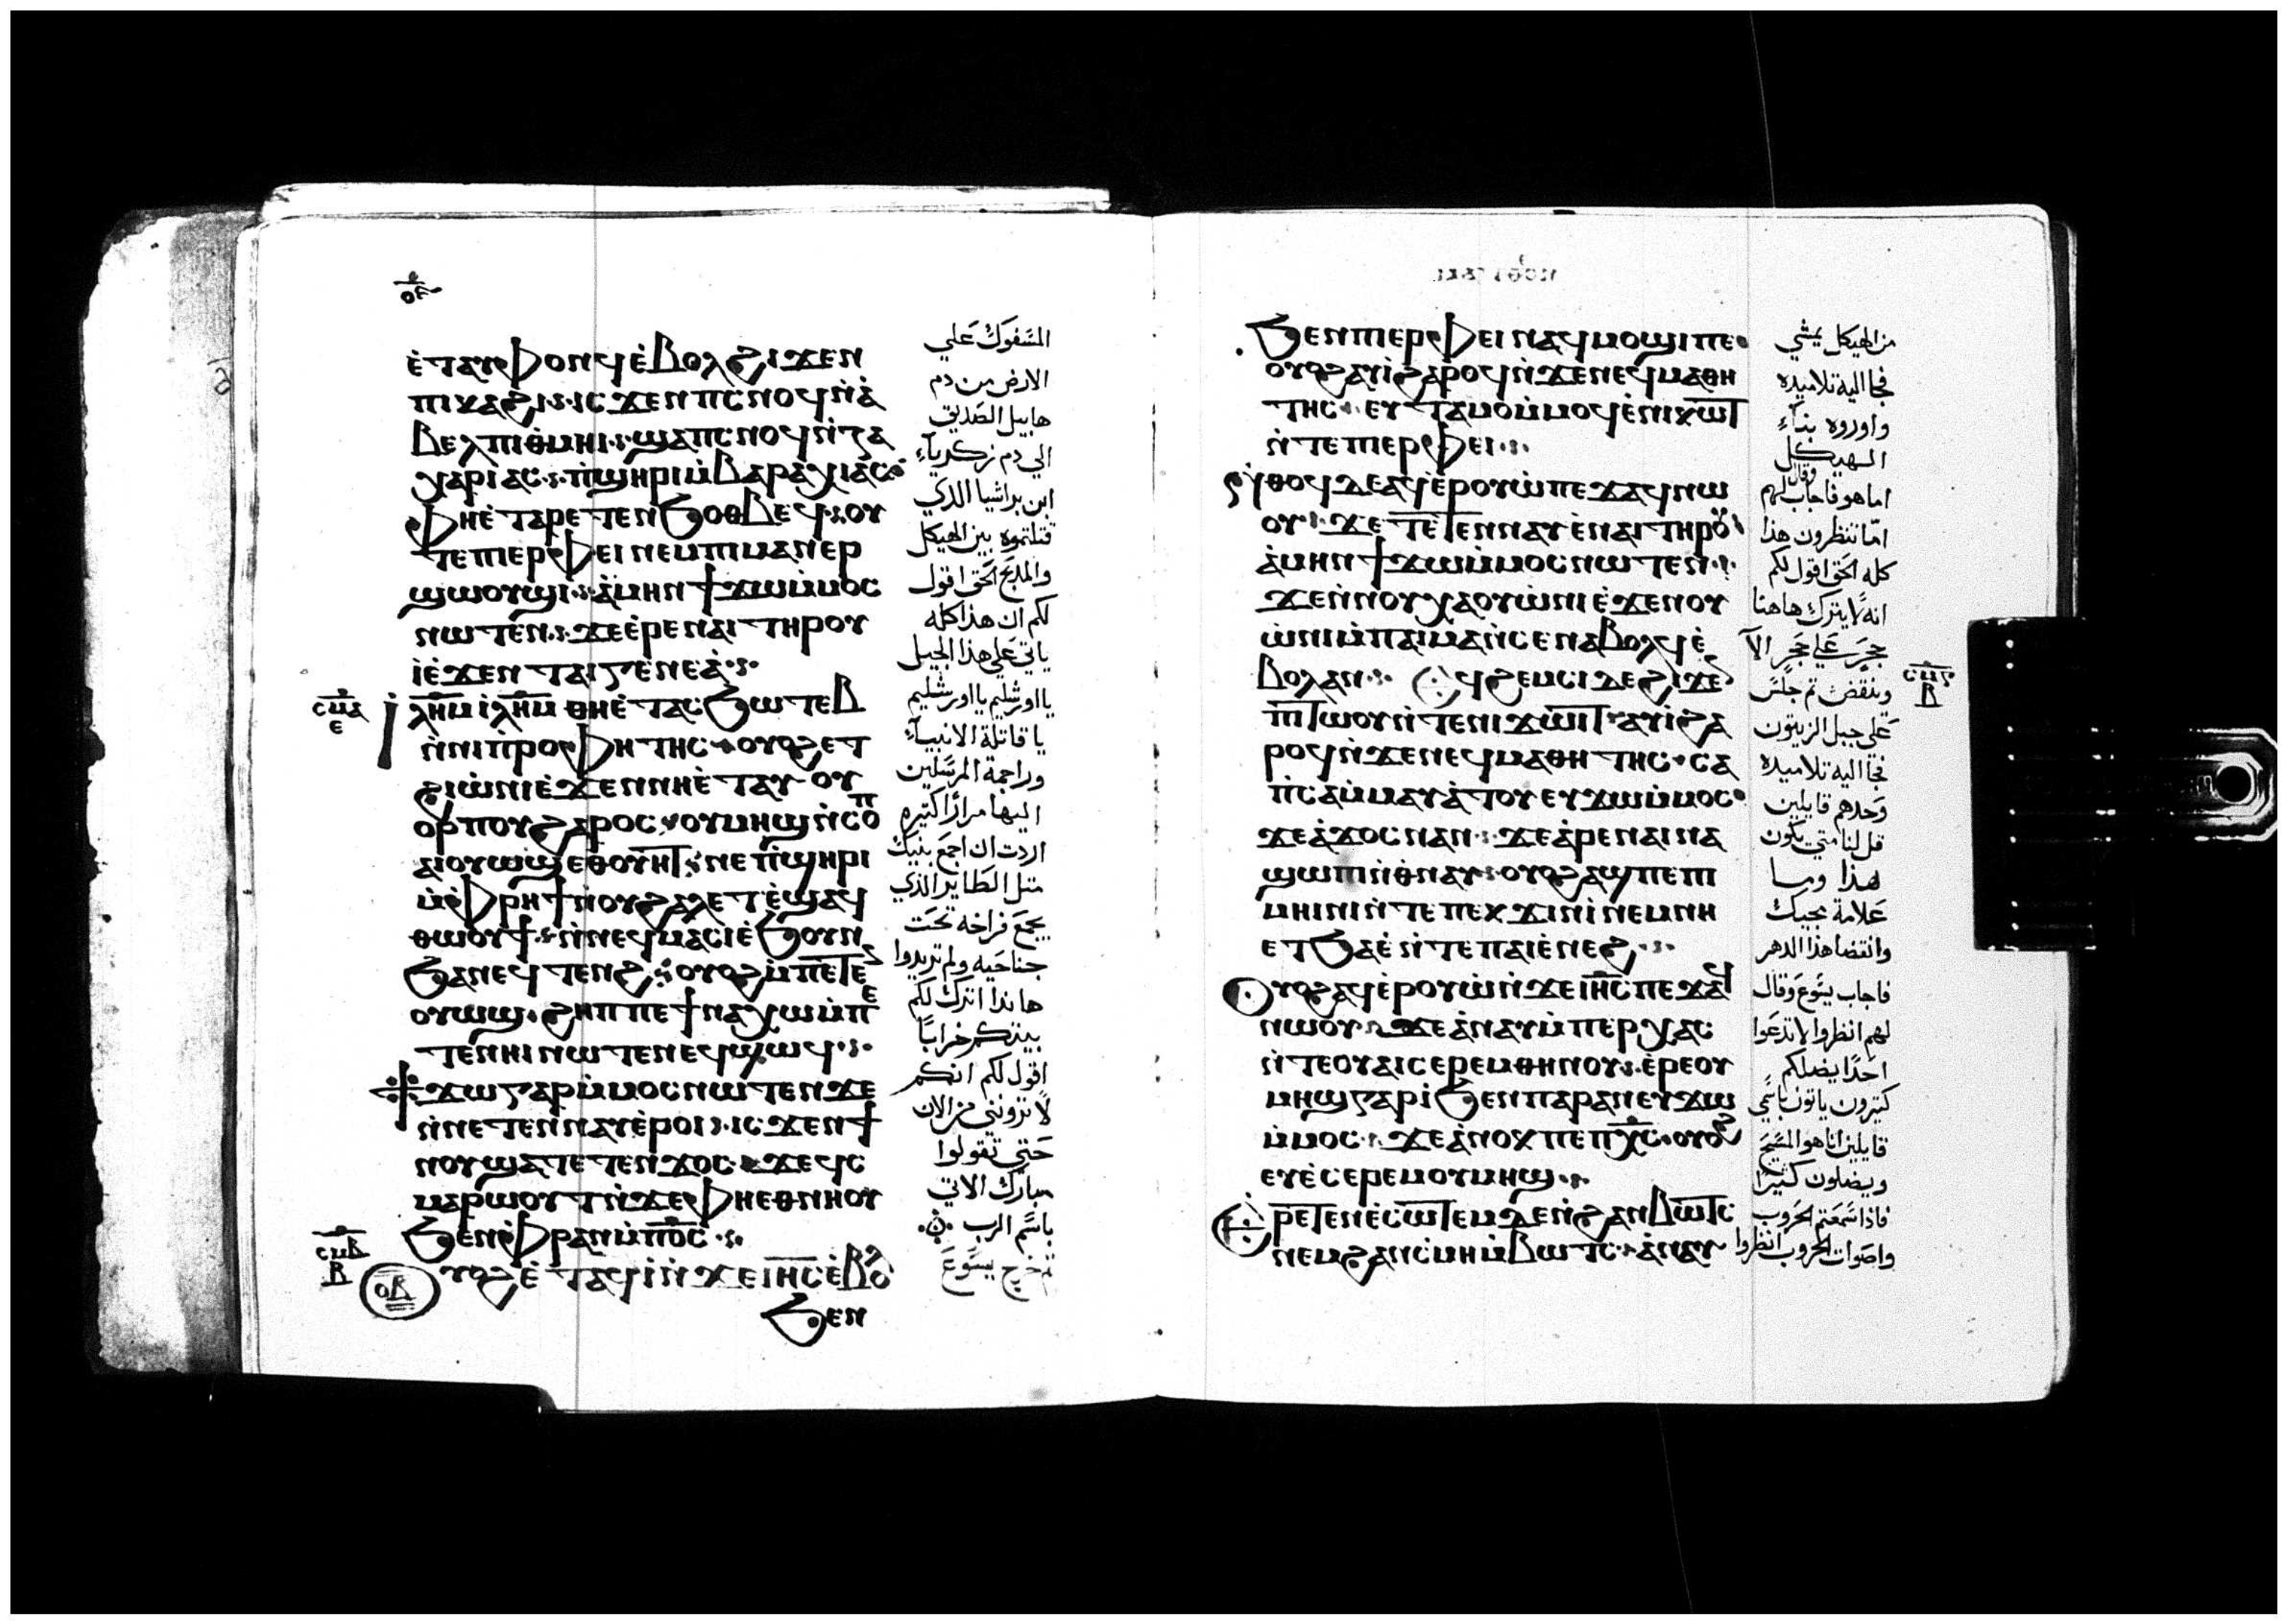 ⲉ̀ⲧⲁⲩⲫⲟⲛϥ ⲉ̀ⲃⲟⲗ ϩⲓϫⲉⲛ
ⲡⲓⲕⲁϩⲓ ⲓⲥϫⲉⲛ ⲡⲥⲛⲟϥ ⲛ̀ⲁ̀
ⲃⲉⲗ ⲡⲓⲑⲙⲏⲓ ϣⲁ ⲡⲥⲛⲟϥ ⲛ̀ⲍⲁ
ⲭⲁⲣⲓⲁⲥ ⲡ̀ϣⲏⲣⲓ ⲙ̀ⲃⲁⲣⲁⲭⲓⲁⲥ
ⲫⲏⲉ̀ⲧⲁⲣⲉⲧⲉⲛϧⲟⲑⲃⲉϥ ⲟⲩ
ⲧⲉ ⲡⲓⲉⲣⲫⲉⲓ ⲛⲉⲙ ⲡⲓⲙⲁⲛⲉⲣ
ϣⲱⲟⲩϣⲓ ⲁ̀ⲙⲏⲛ ϯϫⲱ ⲙ̀ⲙⲟⲥ
ⲛⲱⲧⲉⲛ ϫⲉ ⲉ̀ⲣⲉ ⲛⲁⲓ ⲧⲏⲣⲟⲩ
ⲓ̀ ⲉ̀ϫⲉⲛ ⲧⲁⲓⲅⲉⲛⲉⲁ̀
ⲓ̀ⲗⲏⲙ ⲓ̀ⲗⲏⲙ ⲑⲏⲉ̀ⲧⲁⲥϧⲱⲧⲉⲃ
ⲛ̀ⲛⲓⲡ̀ⲣⲟⲫⲏⲧⲏⲥ ⲟⲩⲟϩ ⲉⲧ
ϩⲓⲱ̀ⲛⲓ ⲉ̀ϫⲉⲛ ⲛⲏⲉ̀ⲧⲁⲩⲟⲩ
ⲟⲣⲡⲟⲩ ϩⲁⲣⲟⲥ ⲟⲩⲙⲏϣ ⲛ̀ⲥⲟⲡ
ⲁⲓⲟⲩⲱϣ ⲉⲑⲟⲩⲏⲧ ⲛⲉⲡ̀ϣⲏⲣⲓ
ⲙ̀ⲫⲣⲏϯ ⲛ̀ⲟⲩϩⲁⲗⲉⲧ ⲉ̀ϣⲁϥ
ⲑⲱⲟⲩϯ ⲛ̀ⲛⲉϥⲙⲁⲥ ⲓⲉ̀ϧⲟⲩⲛ
ϧⲁ ⲛⲉϥⲧⲉⲛϩ ⲟⲩⲟϩ ⲙ̀ⲡⲉⲧⲉ
ⲟⲩⲱϣ ϩⲏⲡⲡⲉ ϯⲛⲁⲭⲱ ⲙ̀ⲡⲉ
ⲧⲉⲛⲏⲓ ⲛⲱⲧⲉⲛ ⲉϥϣⲱϥ
ϯϫⲱ ⲅⲁⲣ ⲙ̀ⲙⲟⲥ ⲛⲱⲧⲉⲛ ϫⲉ
ⲛ̀ⲛⲉⲧⲉⲛⲛⲁⲩ ⲉ̀ⲣⲟⲓ ⲓⲥϫⲉⲛ ϯ
ⲛⲟⲩ ϣⲁⲧⲉⲧⲉⲛϫⲟⲥ ϫⲉ ϥⲥ
ⲙⲁⲣⲱⲟⲩⲧ ⲛ̀ϫⲉ ⲫⲏⲉⲑⲛⲏⲟⲩ
ϧⲉⲛ ⲫⲣⲁⲛ ⲙ̀ⲡⲟ̅ⲥ̅
ⲟⲃ ⲩⲟϩ ⲉ̀ⲧⲁϥⲓ̀ ⲛ̀ϫⲉ ⲓⲏ̅ⲥ̅ ⲉ̀ⲃⲟⲗ
ϧⲉⲛ
ⲥⲙⲁ
ⲉ
ⲥⲙⲃ
ⲃ
المسفوك علي
الارض من دم
هابيل الصديق
الي دم زكرياء
ابن براشيا الذي
قتلتموه بين الهيكل
والمذبح الحق اقول
لكم ان هذا كله
ياتي علي هذا الجيل
يااورشليم يااورشليم
يا قاتلة الانبياء
وراجمة المرسلين
اليها مراراً كتيره
اردت ان اجمع بنيك
متل الطاير الذي
يجمع فراخه تحت
جناحيه ولم تريدوا
هاندا اترك لكم
بيتكم خراباً
اقول لكم انكم
لا تروني من الان
حتي تقولوا
مبارك الاتي
باسم الرب
تم خرج يسوع
ϧⲉⲛ ⲡⲓⲉⲣⲫⲉⲓ ⲛⲁϥⲙⲟϣⲓ ⲡⲉ
ⲟⲩⲟϩ ⲁⲩⲓ̀ ϩⲁⲣⲟϥ ⲛ̀ϫⲉ ⲛⲉϥⲙⲁⲑⲏ
ⲧⲏⲥ ⲉⲩⲧⲁⲙⲟ ⲙ̀ⲙⲟϥ ⲉ̀ⲛⲓⲕⲱⲧ
ⲛ̀ⲧⲉ ⲡⲓⲉⲣⲫⲉⲓ
ⲛ̀ⲑⲟϥ ⲇⲉ ⲁϥⲉ̀ⲣⲟⲩⲱ̀ ⲡⲉϫⲁϥ ⲛⲱ
ⲟⲩ ϫⲉ ⲧⲉⲧⲉⲛⲛⲁⲩ ⲉ̀ⲛⲁⲓ ⲧⲏⲣⲟⲩ
ⲁ̀ⲙⲏⲛ ϯϫⲱ ⲙ̀ⲙⲟⲥ ⲛⲱⲧⲉⲛ
ϫⲉ ⲛ̀ⲛⲟⲩⲭⲁ ⲟⲩⲱ̀ⲛⲓ ⲉ̀ϫⲉⲛ ⲟⲩ
ⲱ̀ⲛⲓ ⲙ̀ⲡⲁⲓⲙⲁ ⲛ̀ⲥⲉⲛⲁⲃⲟⲗϥ ⲉ̀
ⲃⲟⲗ ⲁⲛ ⲉϥϩⲉⲙⲥⲓ ⲇⲉ ϩⲓϫⲉⲛ
ⲡⲧⲱⲟⲩ ⲛ̀ⲧⲉ ⲛⲓϫⲱⲓⲧ ⲁⲩⲓ̀ ϩⲁ
ⲣⲟϥ ⲛ̀ϫⲉ ⲛⲉϥⲙⲁⲑⲏⲧⲏⲥ ⲥⲁ
ⲡ̀ⲥⲁ ⲙ̀ⲙⲁⲩⲁ̀ⲧⲟⲩ ⲉⲩϫⲱ ⲙ̀ⲙⲟⲥ
ϫⲉ ⲁ̀ϫⲟⲥ ⲛⲁⲛ ϫⲉ ⲁ̀ⲣⲉ ⲛⲁⲓ ⲛⲁ
ϣⲱⲡⲓ ⲛ̀ⲑⲛⲁⲩ ⲟⲩⲟϩ ⲁϣ ⲡⲉ ⲡⲓ
ⲙⲏⲓⲛⲓ ⲛ̀ⲧⲉ ⲡⲉⲕϫⲓⲛⲓ̀ ⲛⲉⲙ ⲛⲏ
ⲉⲧϧⲁⲉ̀ ⲛ̀ⲧⲉ ⲡⲁⲓⲉ̀ⲛⲉϩ
ⲟⲩⲟϩ ⲁϥⲉ̀ⲣⲟⲩⲱ̀ ⲛ̀ϫⲉ ⲓⲏ̅ⲥ̅ ⲡⲉϫⲁϥ
ⲛⲱⲟⲩ ϫⲉ ⲁ̀ⲛⲁⲩ ⲙ̀ⲡⲉⲣⲭⲁⲥ
ⲛ̀ⲧⲉ ⲟⲩⲁⲓ ⲥⲉⲣⲉⲙ ⲑⲏⲛⲟⲩ ⲉ̀ⲣⲉ ⲟⲩ
ⲙⲏϣ ⲅⲁⲣ ⲓ̀ ϧⲉⲛ ⲡⲁⲣⲁⲛ ⲉⲩϫⲱ
ⲙ̀ⲙⲟⲥ ϫⲉ ⲁ̀ⲛⲟⲕ ⲡⲉ ⲡⲭ̅ⲥ̅ ⲟⲩⲟϩ
ⲉⲩⲉ̀ⲥⲉⲣⲉⲙ ⲟⲩⲙⲏϣ
ⲉ̀ⲣⲉⲧⲉⲛⲉ̀ⲥⲱⲧⲉⲙ ⲇⲉ ⲛ̀ϩⲁⲛⲃⲱⲧⲥ
ⲛⲉⲙ ϩⲁⲛⲥⲙⲏ ⲙ̀ⲃⲱⲧⲥ ⲁ̀ⲛⲁⲩ
ⲃ
من الهيكل يمشي
فجا اليه تلاميذه
واوروه بناء
الهيكل
اما هو فاجاب وقال لهم
امّا تنظرون هذا
كله الحق اقول لكم
انه لا يترك هاهنا
حجر علي حجر الا
وينقض تم جلس
علي جبل الزيتون
فجا اليه تلاميذه
وحدهم قايلين
قل لنا متي يكون
هذا وما
علامة مجيك
وانقضا هذا الدهر
فاجاب يسوع وقال
لهم انظروا لا تدعوا
احدًا يضلكم
كتيرون ياتون باسمي
قايلين انا هو المسيح
ويضلون كثيرًا
فاذا سمعتم الحروب
واصوات الحروب انظروا